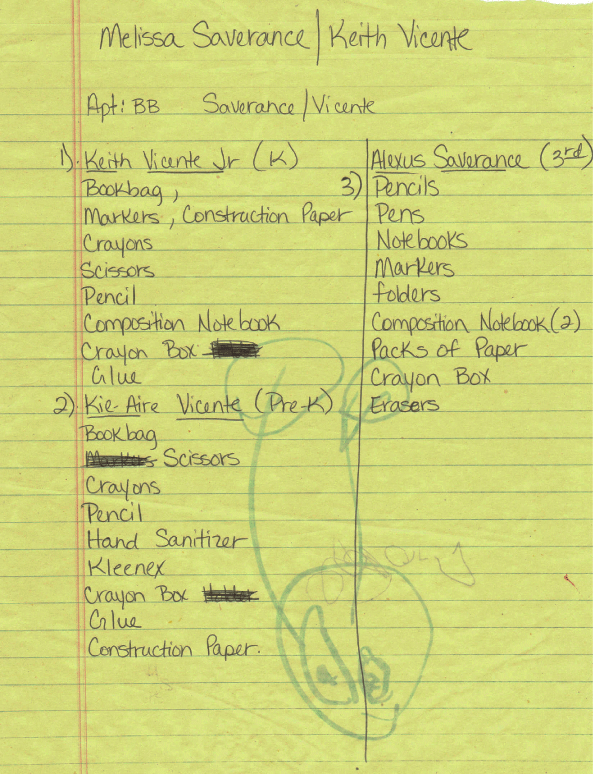 Melissa Saverance | Keith Vicente
Apt: BB Saverance/Vicente
1). Keith Vicente Jr (K)
Bookbag,
Markers, Construction Paper
Crayons
Scissors
Pencil
Composition Notebook
Crayon Box
Glue
2). Kie-Aire Vicente (Pre-K)
Bookbag
Scissors
Crayons
Pencil
Hand Sanitizer
Kleenex
Crayon Box
Glue
Construction Paper.
Alexus Saverance (3rd)
3) Pencils
Pens
Notebooks
Markers
folders
Composition Notebook (2)
Packs of Paper
Crayon Box
Erasers